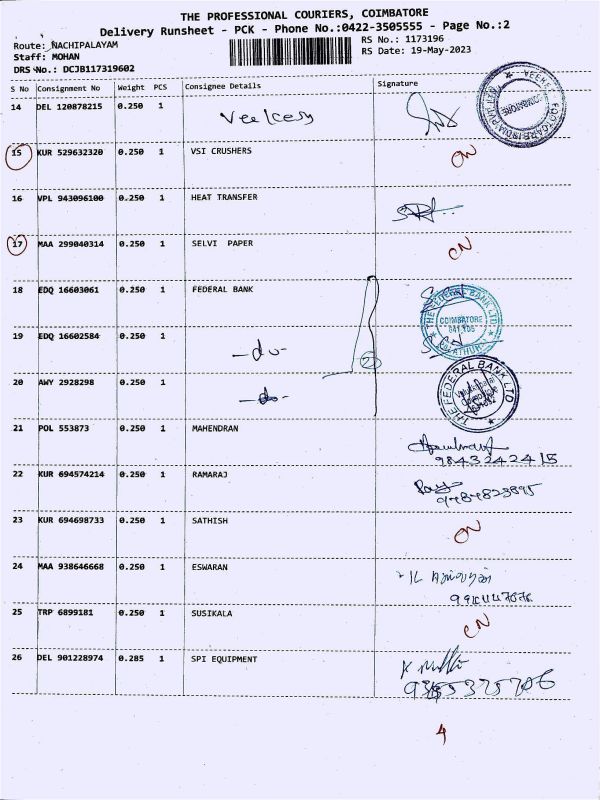 THE PROFESSIONAL COURIERS, COIMBATORE
Delivery Runsheet - PCK - Phone No.:0422-3505555 - Page No.:2
Route: NACHIPALAYAM
RS No.: 1173196
Staff: MOHAN
RS Date: 19-May-2023
DRS No.: DCJB117319602
S No Consignment No Weight PCS Consignee Details Signature
14 DEL 120878215 0.250 1
15 KUR 529632320 0.250 1 VSI CRUSHERS CN
16 VPL 943096100 0.250 1 HEAT TRANSFER
17 MAA 299040314 0.250 1 SELVI PAPER CN
18 EDQ 16603061 0.250 1 FEDERAL BANK
THE FEDERAL BANK LTD
COIMBATORE
19 EDQ 16602584 0.250 1 -do-
2
20 AWY 2928298 0.250 1 -do-
THE FEDERAL BANK LTD
21 POL 553873 0.250 1 MAHENDRAN
9843242415
22 KUR 694574214 0.250 1 RAMARAJ
23 KUR 694698733 0.250 1 SATHISH CN
24 MAA 938646668 0.250 1 ESWARAN
25 TRP 6899181 0.250 1 SUSIKALA CN
26 DEL 901228974 0.285 1 SPI EQUIPMENT
4